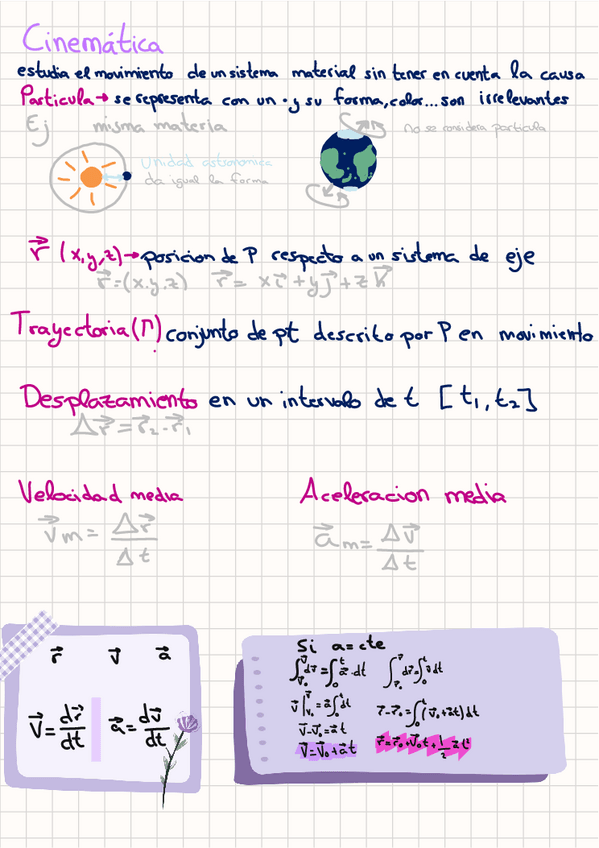 Cinemática
estudia el movimiento de un sistema material sin tener en cuenta la causa
Particula → se representa con un · y su forma, color... son irrelevantes
Ej misma materia
No se considera particula
Unidad astronomica
da igual la forma
r⃗ (x,y,z) → posicion de P respecto a un sistema de eje
r⃗=(x,y,z) r⃗ = xi⃗+yj⃗+zk⃗
Trayectoria(Γ) conjunto de pt descrito por P en movimiento
Desplazamiento en un intervalo de t [t₁, t₂]
Δr⃗=r⃗₂-r⃗₁
Velocidad media
v⃗m = Δr⃗/Δt
Aceleracion media
a⃗m = Δv⃗/Δt
r⃗ v⃗ a⃗
v⃗=dr⃗/dt a⃗=dv⃗/dt
Si a=cte
∫v⃗₀^v⃗ dv⃗=∫₀^t a⃗·dt ∫r⃗₀^r⃗ dr⃗=∫₀^t v⃗dt
v⃗|v⃗₀^v⃗=a⃗∫₀^t dt r-r₀=∫₀^t(v⃗₀+a⃗t)dt
v⃗-v⃗₀=a⃗t
v⃗=v⃗₀+a⃗t r⃗=r⃗₀+v⃗₀t+1/2 a⃗t²